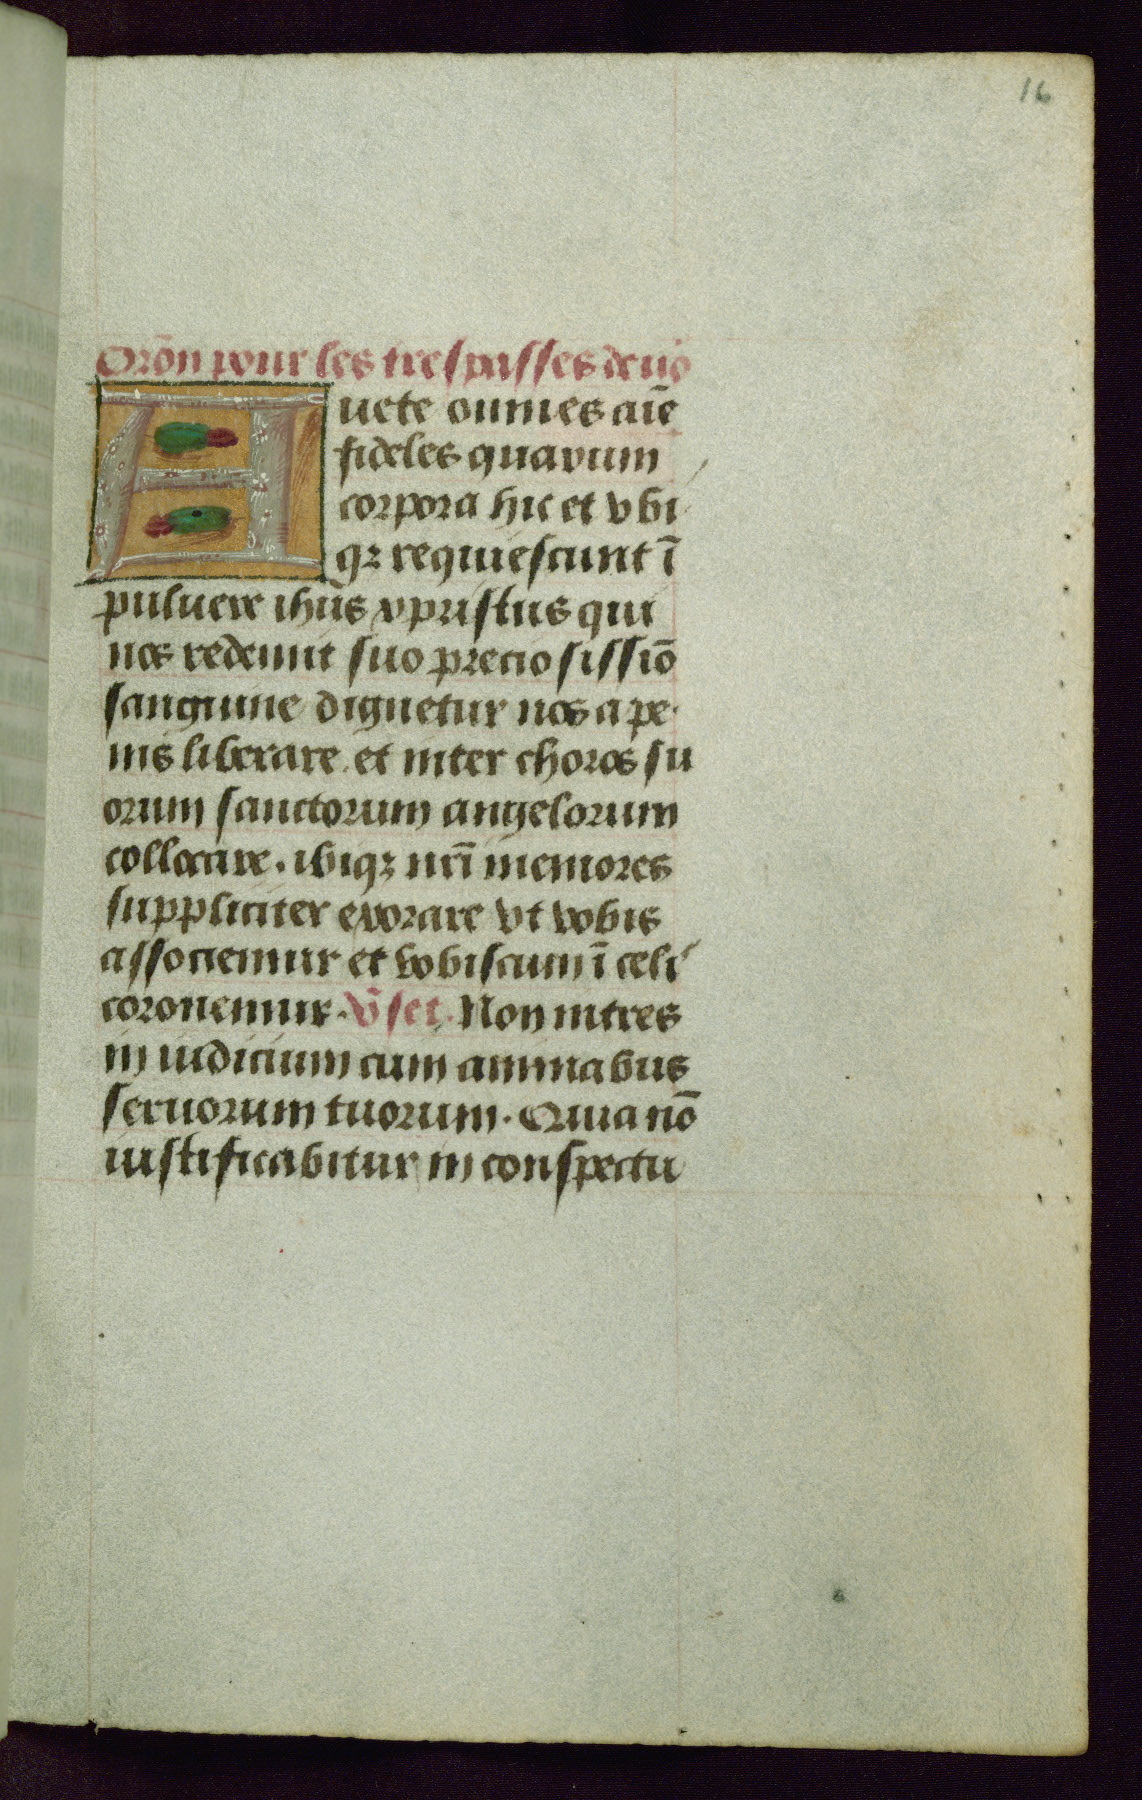 16
Orõn pour les trespasses deuõ
Auete oumes aīe
fideles quarum
corpora hic et vbi
qꝫ requiescunt ī
puluere ihūs xpristus qui
nos redemit suo preciosissiõ
sanguine dignetur nos a pe
nis liberare et inter choros su
orum sanctorum angelorum
collocare. ibiqꝫ nrī memores
suppliciter exorare vt vobis
associemur et vobiscum ī celi
coronemur. v̄set. Non intres
in iudicium cum animabus
seruorum tuorum. Quia nõ
iustificabitur in conspectu